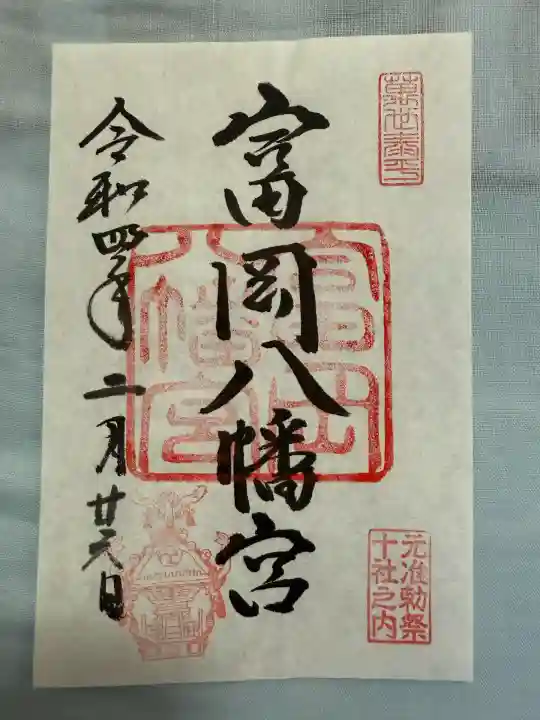 萬世泰平
富岡八幡宮
富岡
八幡宮
元准勅祭
十社之内
令和四年二月廿六日